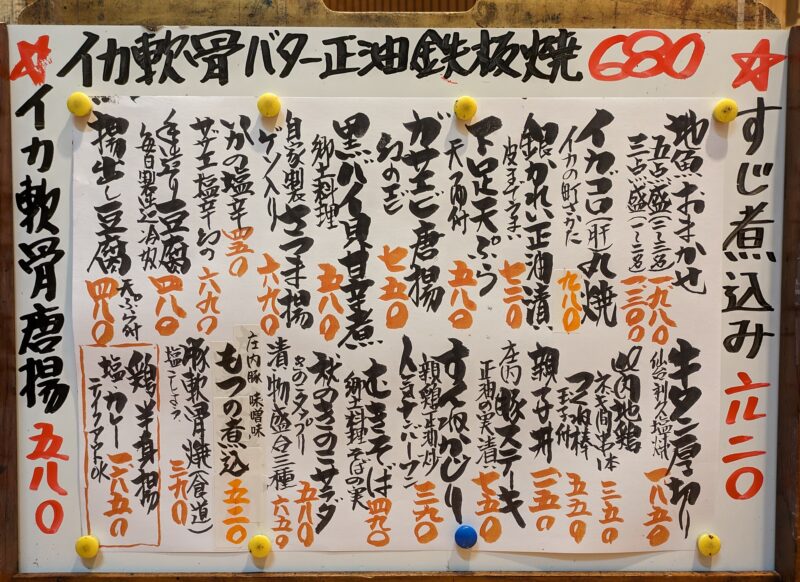 イカ軟骨バター正油鉄板焼 680
すじ煮込み 六二〇
地魚おまかせ
五点盛(二~三迠) 一九八〇
三点盛(一~二迠) 一三〇〇
イカゴロ(肝)丸焼
イカの町さかた 九八〇
銀かれい正油漬
皮までうまい 七三〇
下足天ぷら
天つゆ付 五八〇
ガサエビ唐揚
幻のエビ 七五〇
黒バイ貝甘辛煮
郷土料理 五八〇
自家製さつま揚
ゲソ入り 六九〇
いかの塩辛 四五〇
サザエ塩辛 幻の 六九〇
手造り豆腐
毎日製造 冷奴 四八〇
揚出し豆腐
天ぷら付 四八〇
牛タン厚切り
仙台 塩焼 一八五〇
山内地鶏
ネギ間串一本 三五〇
つくね棒
玉子付 五五〇
親子丼
庄内豚ステーキ
正油の実漬 七五〇
すなぎもかじり
むきそば
郷土料理 そばの実 四九〇
秋のきのこサラダ
五八〇
漬物盛合三種 六五〇
庄内豚 味噌味
もつの煮込 五二〇
豚軟骨焼(食道)
塩こしょう 三九〇
鶏半身揚
塩 カレー
テイクアウトOK 一六五〇
イカ軟骨唐揚 五八〇